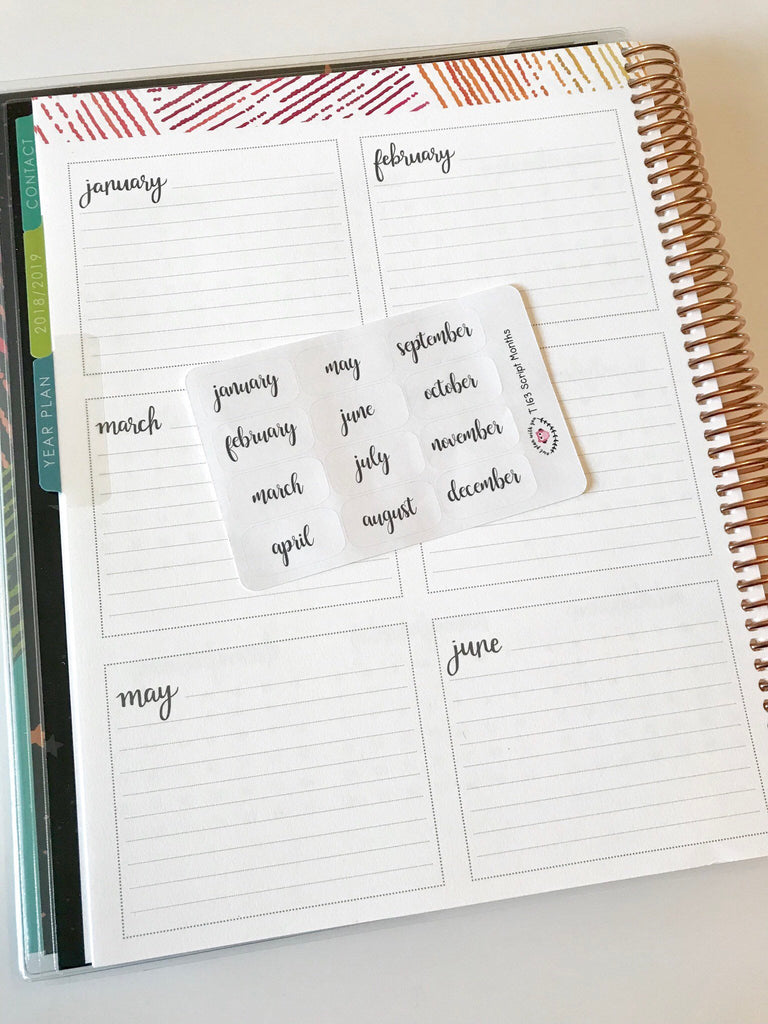 CONTACT
2018/2019
YEAR PLAN
january
february
march
may
june
january
february
march
april
may
june
july
august
september
october
november
december
T163 Script Months